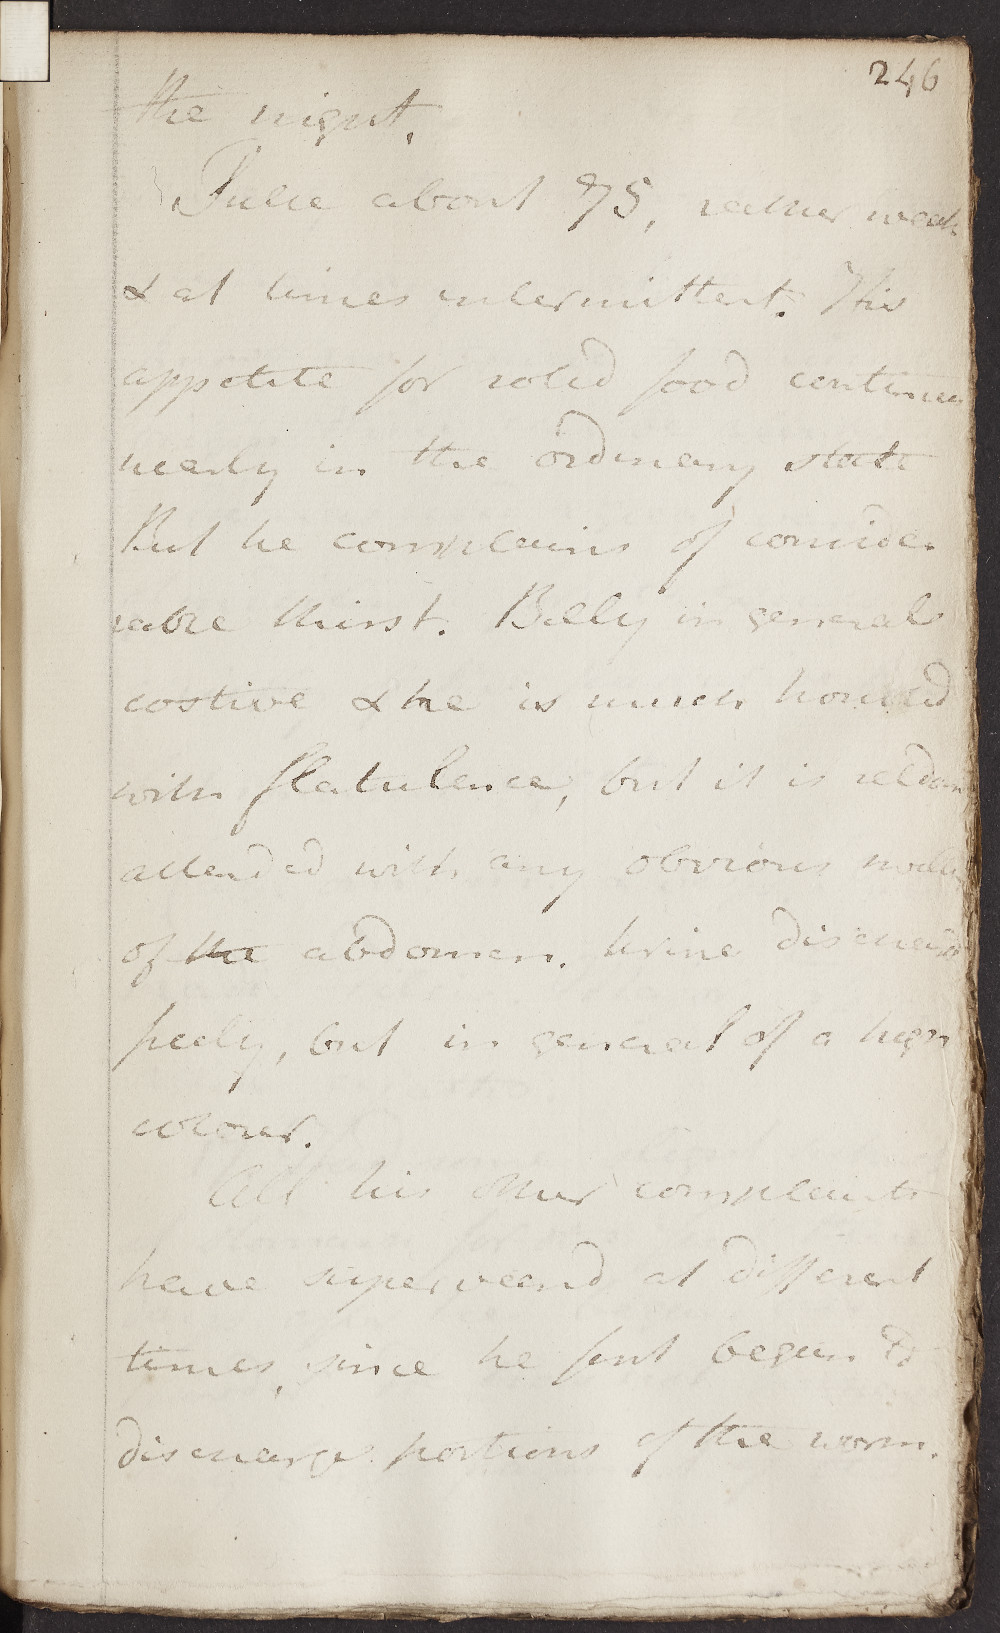 246
the night.
Pulse about 75, rather weak
& at times intermittent. His
appetite for solid food continues
nearly in the ordinary state
But he complains of conside-
rable thirst. Belly in general
costive & he is much
with flatulence, but it is seldom
attended with any obvious swelling
of the abdomen. Urine discharged
freely, but in general of a high
colour.
All his other complaints
have superveend at different
times, since he first began to
discharge portions of the worm.